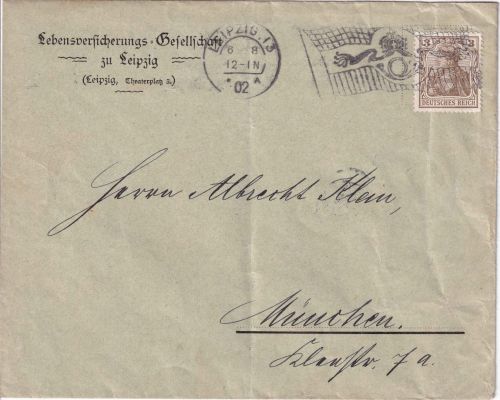 Lebensversicherungs-Gesellschaft
zu Leipzig
(Leipzig, Theaterplatz 3.)
LEIPZIG 13
6 8
12-1N
* 02 A
3 3
DEUTSCHES REICH
Herrn Albrecht Klein,
München.
Klenzstr. 7a.